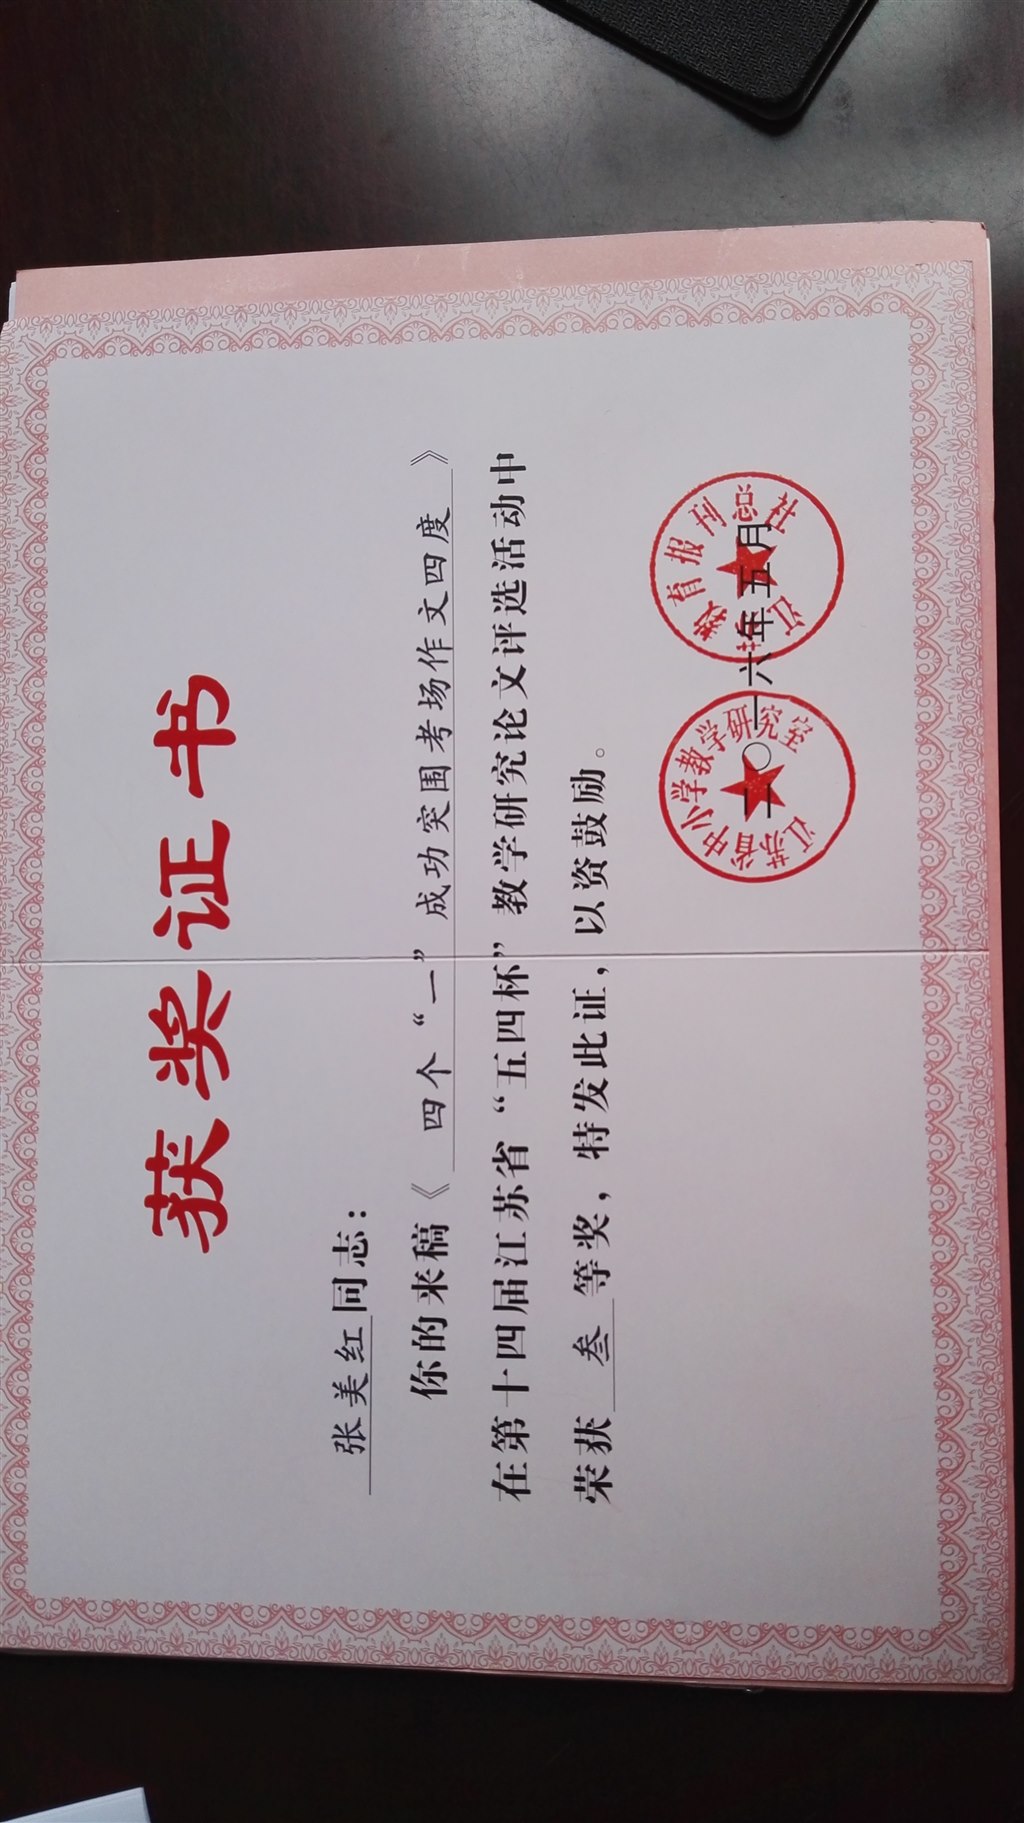 获奖证书
张美红同志：
你的来稿《四个“一”成功突围考场作文四度》
在第十四届江苏省“五四杯”教学研究论文评选活动中
荣获 叁 等奖，特发此证，以资鼓励。
江苏省中小学教学研究室
江苏教育报刊总社
二〇一六年五月